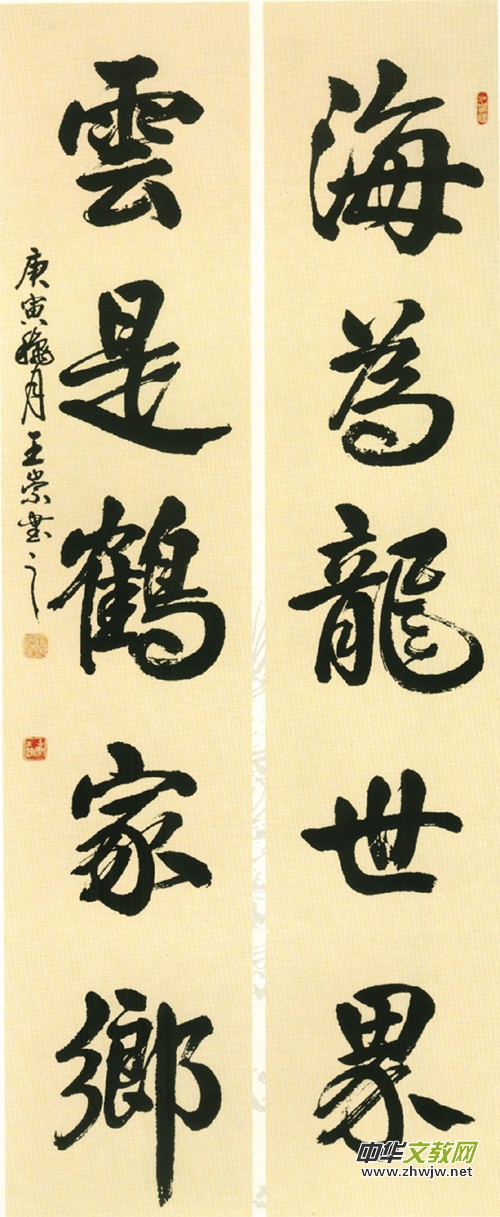 海為龍世界
雲是鶴家鄉
庚寅穐月王崇書之
中华文教网
www.zhwjw.net